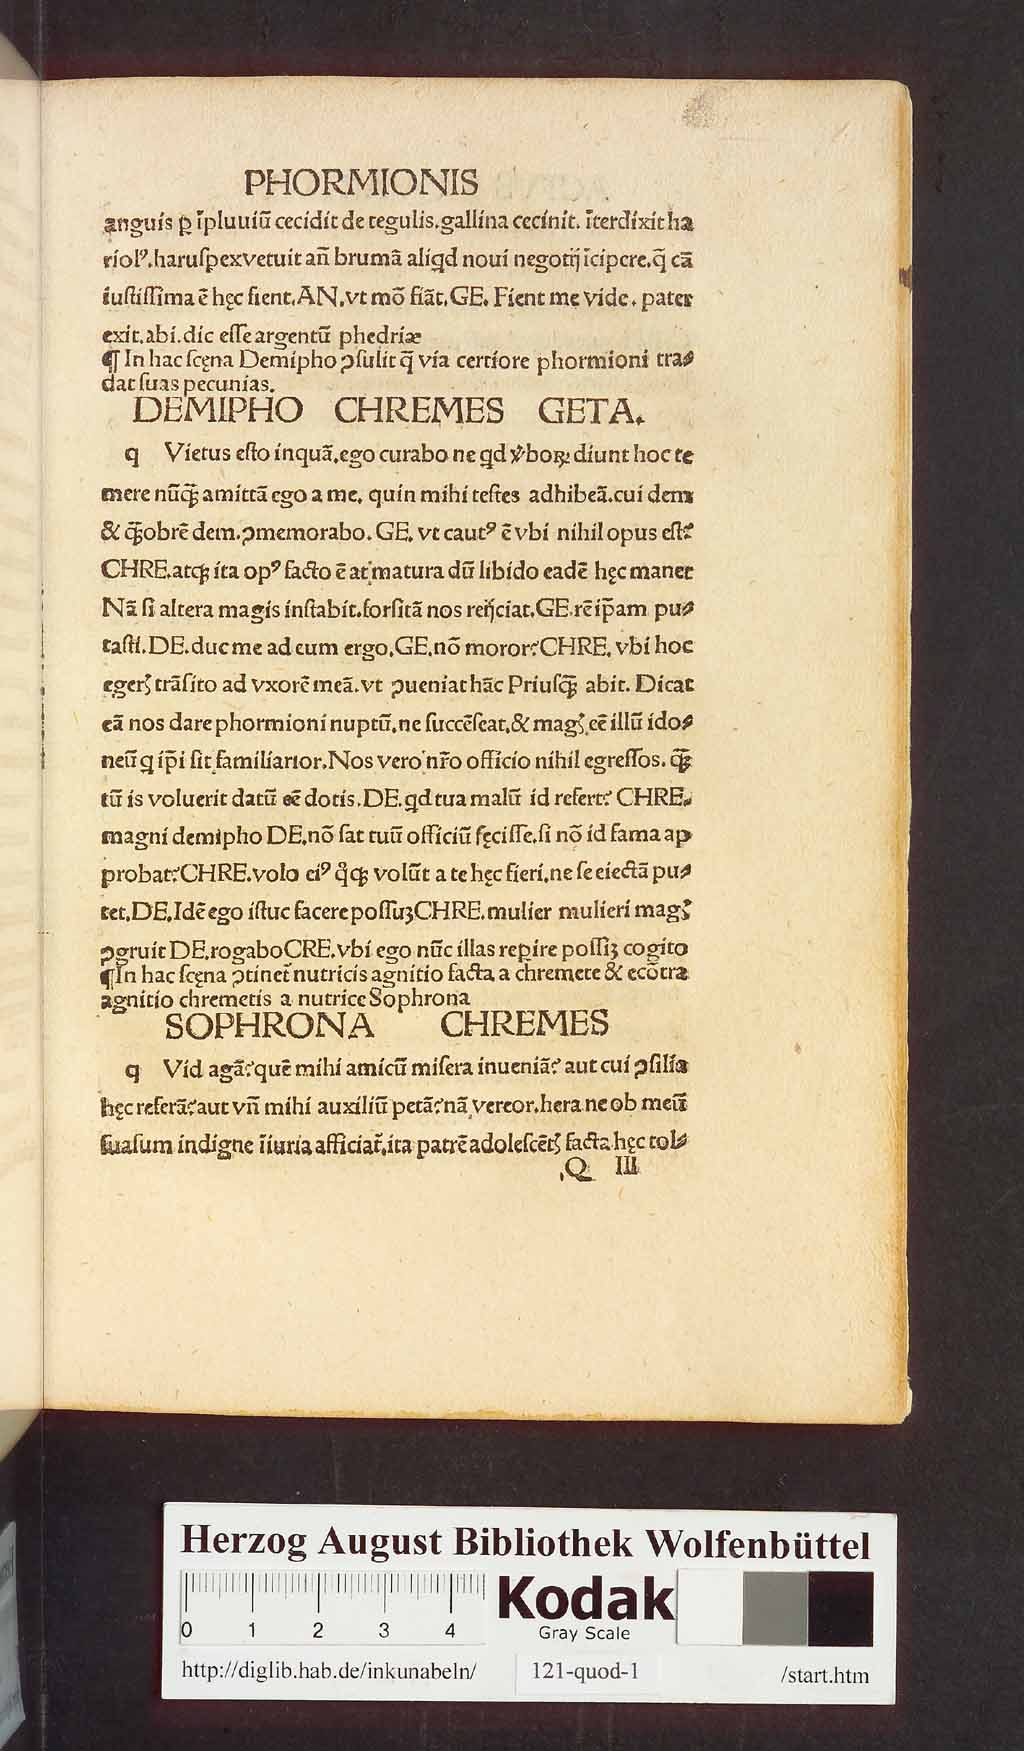 PHORMIONIS
anguis ꝑ ĩpluuiũ cecidit de tegulis.gallina cecinit. ĩterdixit ha
riolꝰ.haruſpex vetuit an̄ brumã aliqd noui negotij ĩcipere.q̃ cã
iuſtiſſima ẽ hęc fient.AN.vt mõ fiãt.GE. Fient me vide. pater
exit.abi.dic eſſe argentũ phedriæ
¶ In hac ſcęna Demipho ꝯſulit q̃ via certiore phormioni tra⸗
dat ſuas pecunias.
DEMIPHO CHREMES GETA.
q Vietus eſto inquã.ego curabo ne qd v̾boꝝ diunt hoc te
mere nũꝙ̃ amittã ego a me. quin mihi teſtes adhibeã.cui dem
& ꝙ̃obrẽ dem.ꝯmemorabo.GE. vt cautꝰ ẽ vbi nihil opus eſt?
CHRE.atqꝫ ita opꝰ facto ẽ at matura dũ libido eadẽ hęc manet
Nã ſi altera magis inſtabit.forſitã nos reijciat.GE.rẽ ip̃am pu⸗
taſti.DE.duc me ad eum ergo.GE.nõ moror?CHRE. vbi hoc
egerꝭ trãſito ad vxorẽ meã.vt ꝯueniat hãc Priuſꝙ̃ abit. Dicat
eã nos dare phormioni nuptũ.ne ſuccẽſeat.& magꝭ eẽ illũ ido⸗
neũ q ip̃i ſit familiarior.Nos vero nr̃o officio nihil egreſſos. ꝙ̃
tũ is voluerit datũ eẽ dotis.DE.qd tua malũ id refert? CHRE.
magni demipho DE.nõ ſat tuũ officiũ fęciſſe.ſi nõ id fama ap
probat?CHRE.volo eiꝰ q̊qꝫ volũt a te hęc fieri.ne ſe eiectã pu⸗
tet.DE.Idẽ ego iſtuc facere poſſuꝫCHRE.mulier mulieri magꝭ
ꝯgruit DE.rogaboCRE.vbi ego nũc illas reꝑire poſſiꝫ cogito
¶In hac ſcęna ꝯtinet̃ nutricis agnitio facta a chremete & ecõtra
agnitio chremetis a nutrice Sophrona
SOPHRONA CHREMES
q Vid agã?quẽ mihi amicũ miſera inueniã? aut cui ꝯſilia
hęc referã?aut vñ mihi auxiliũ petã?nã vereor.hera ne ob meũ
ſuaſum indigne ĩiuria afficiat̃.ita patrẽ adoleſcẽtꝭ facta hęc tol⸗
Q III
Herzog August Bibliothek Wolfenbüttel
0 1 2 3 4
Kodak
Gray Scale
http://diglib.hab.de/inkunabeln/ 121-quod-1 /start.htm